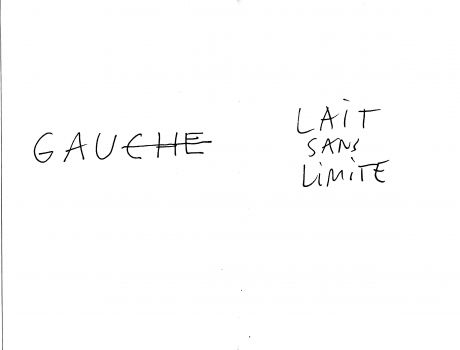 GAUCHE
LAiT
SANS
LiMiTE